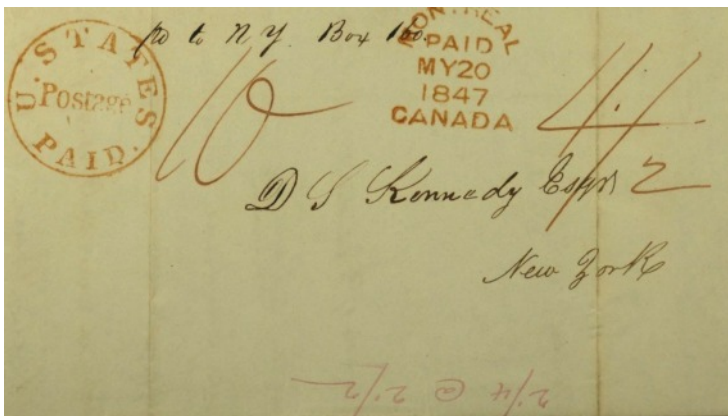 U. STATES
Postage
PAID.
to N.Y. Box 160.
MONTREAL
PAID
MY20
1847
CANADA
10
D S Kennedy Esqr
New York